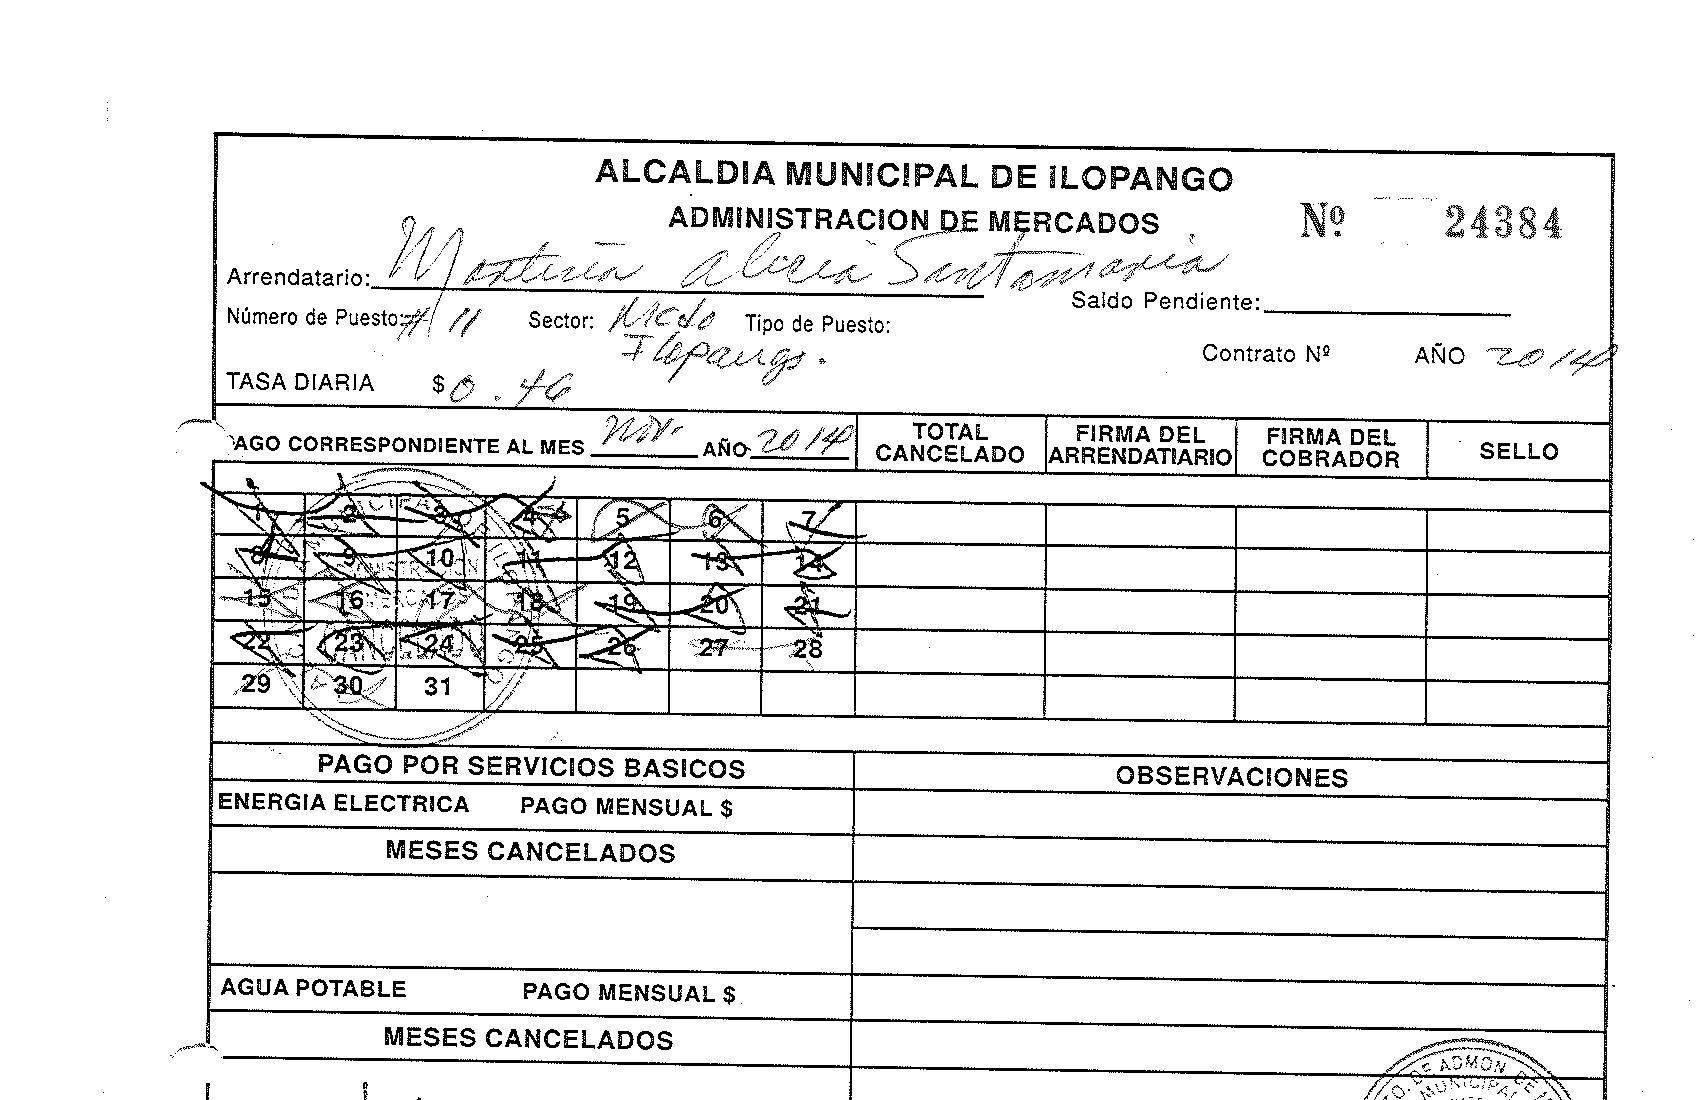 ALCALDIA MUNICIPAL DE ILOPANGO
ADMINISTRACION DE MERCADOS
Nº 24384
Arrendatario: Alicia Santamaria
Saldo Pendiente:
Número de Puesto: # 11 Sector: Mcdo Ilopango. Tipo de Puesto:
Contrato Nº AÑO 2014
TASA DIARIA $ 0.46
PAGO CORRESPONDIENTE AL MES Nov. AÑO 2014
TOTAL CANCELADO
FIRMA DEL ARRENDATIARIO
FIRMA DEL COBRADOR
SELLO
1 2 3 4 5 6 7
8 9 10 11 12 13 14
15 16 17 18 19 20 21
22 23 24 25 26 27 28
29 30 31
PAGO POR SERVICIOS BASICOS
OBSERVACIONES
ENERGIA ELECTRICA PAGO MENSUAL $
MESES CANCELADOS
AGUA POTABLE PAGO MENSUAL $
MESES CANCELADOS
DE ADMON. DE
MUNICIPAL